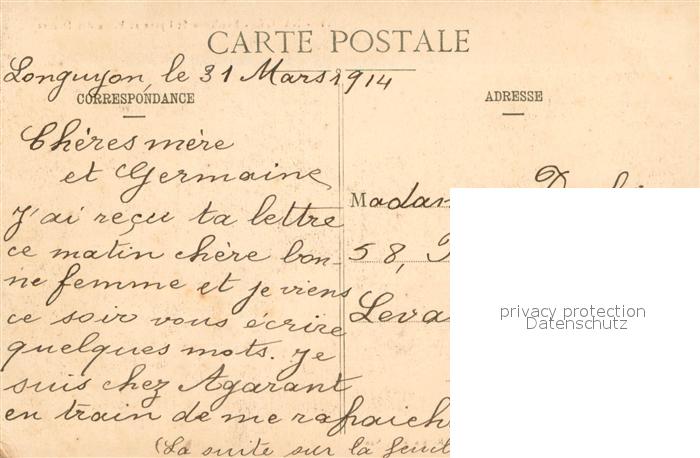 CARTE POSTALE
Longuyon, le 31 Mars 1914
CORRESPONDANCE
ADRESSE
Chères mère
et Germaine
J'ai reçu ta lettre
ce matin chère bon-
ne femme et je viens
ce soir vous écrire
quelques mots. Je
suis chez Agarant
en train de me rafraich
(La suite sur la
Madam
58,
Leva
privacy protection
Datenschutz